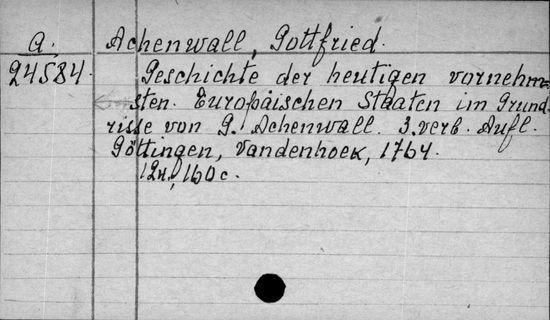 A. Achenwall, Gottfried.
24584. Geschichte der heutigen vornehm-
sten Europäischen Staaten im Grund-
risse von G. Achenwall. 3. verb. Aufl.
Göttingen, Vandenhoek, 1764.
160 c.